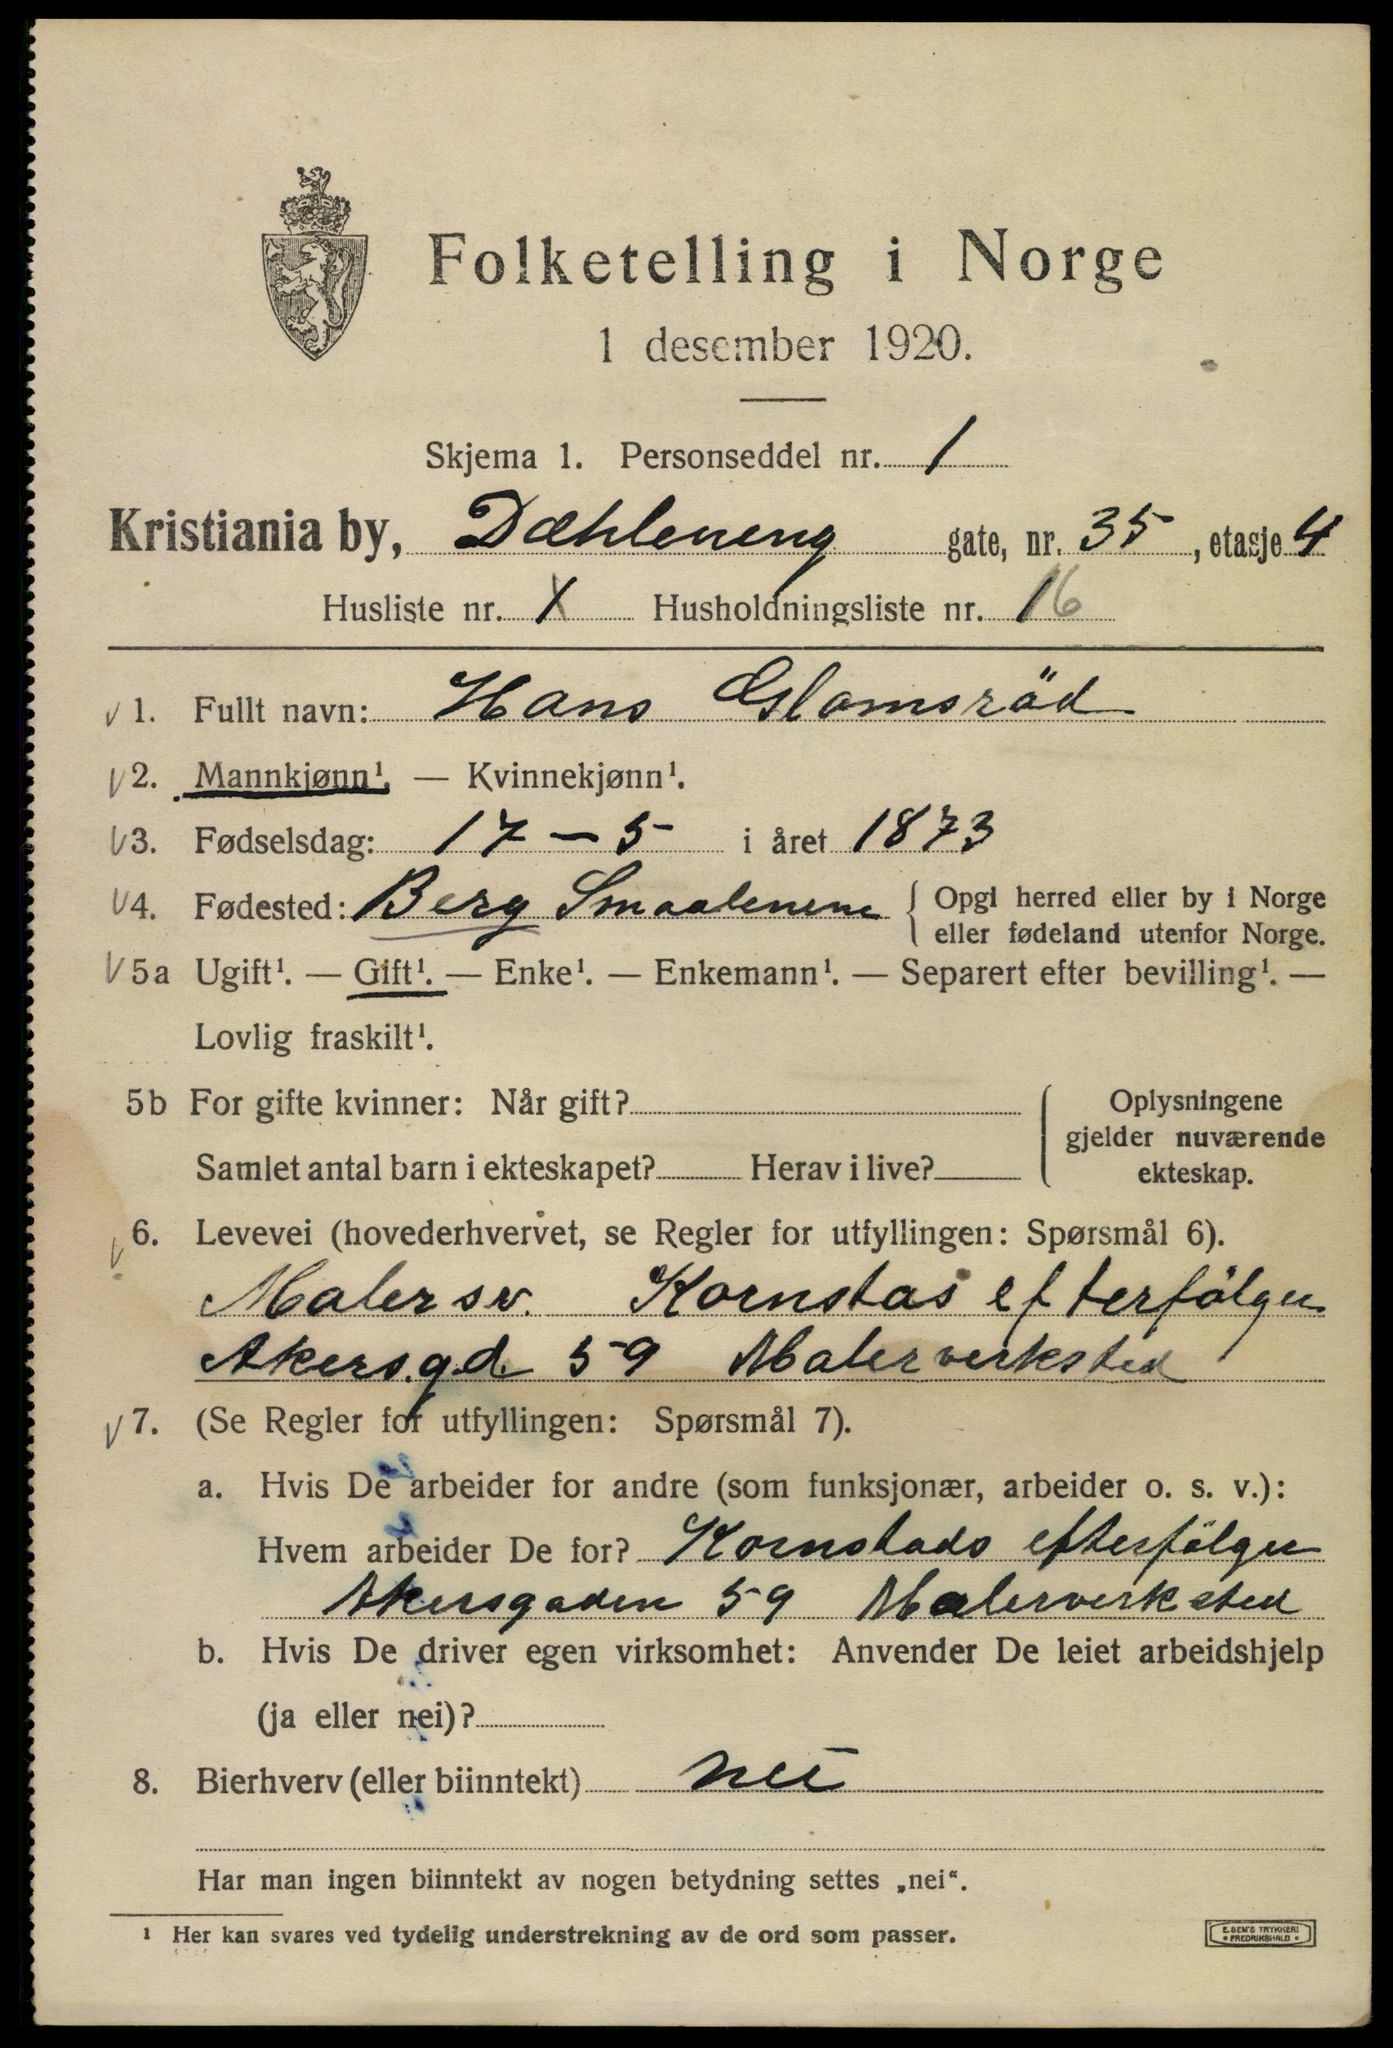 Folketelling i Norge
1 desember 1920.
Skjema 1. Personseddel nr. 1
Kristiania by, Dæhleneng gate, nr. 35, etasje 4
Husliste nr. X Husholdningsliste nr. 16
1. Fullt navn: Hans Glomsröd
2. Mannkjønn¹. — Kvinnekjønn¹.
3. Fødselsdag: 17 – 5 i året 1873
4. Fødested: Berg Smaalenene { Opgi herred eller by i Norge
eller fødeland utenfor Norge.
5a Ugift¹. — Gift¹. — Enke¹. — Enkemann¹. — Separert efter bevilling¹. —
Lovlig fraskilt¹.
5b For gifte kvinner: Når gift?
Samlet antal barn i ekteskapet? Herav i live?
Oplysningene
gjelder nuværende
ekteskap.
6. Levevei (hovederhvervet, se Regler for utfyllingen: Spørsmål 6).
Malersv. Kornstas efterfölger
Akersgd. 59 Malerverksted
7. (Se Regler for utfyllingen: Spørsmål 7).
a. Hvis De arbeider for andre (som funksjonær, arbeider o. s. v.):
Hvem arbeider De for? Kornstads efterfölger
Akersgaden 59 Malerverksted
b. Hvis De driver egen virksomhet: Anvender De leiet arbeidshjelp
(ja eller nei)?
8. Bierhverv (eller biinntekt) nei
Har man ingen biinntekt av nogen betydning settes „nei“.
¹ Her kan svares ved tydelig understrekning av de ord som passer.
E. SEM'S TRYKKERI
FREDRIKSHALD